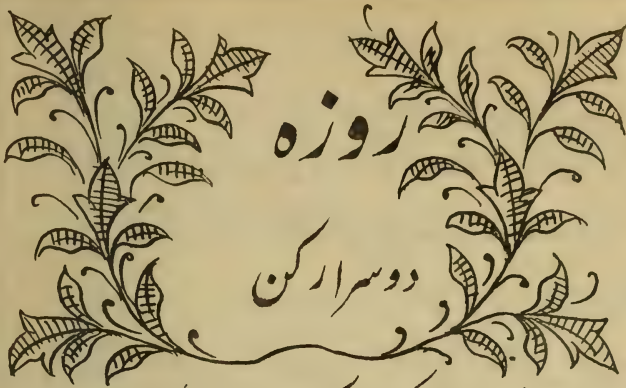 روزہ
دوسرا رکن